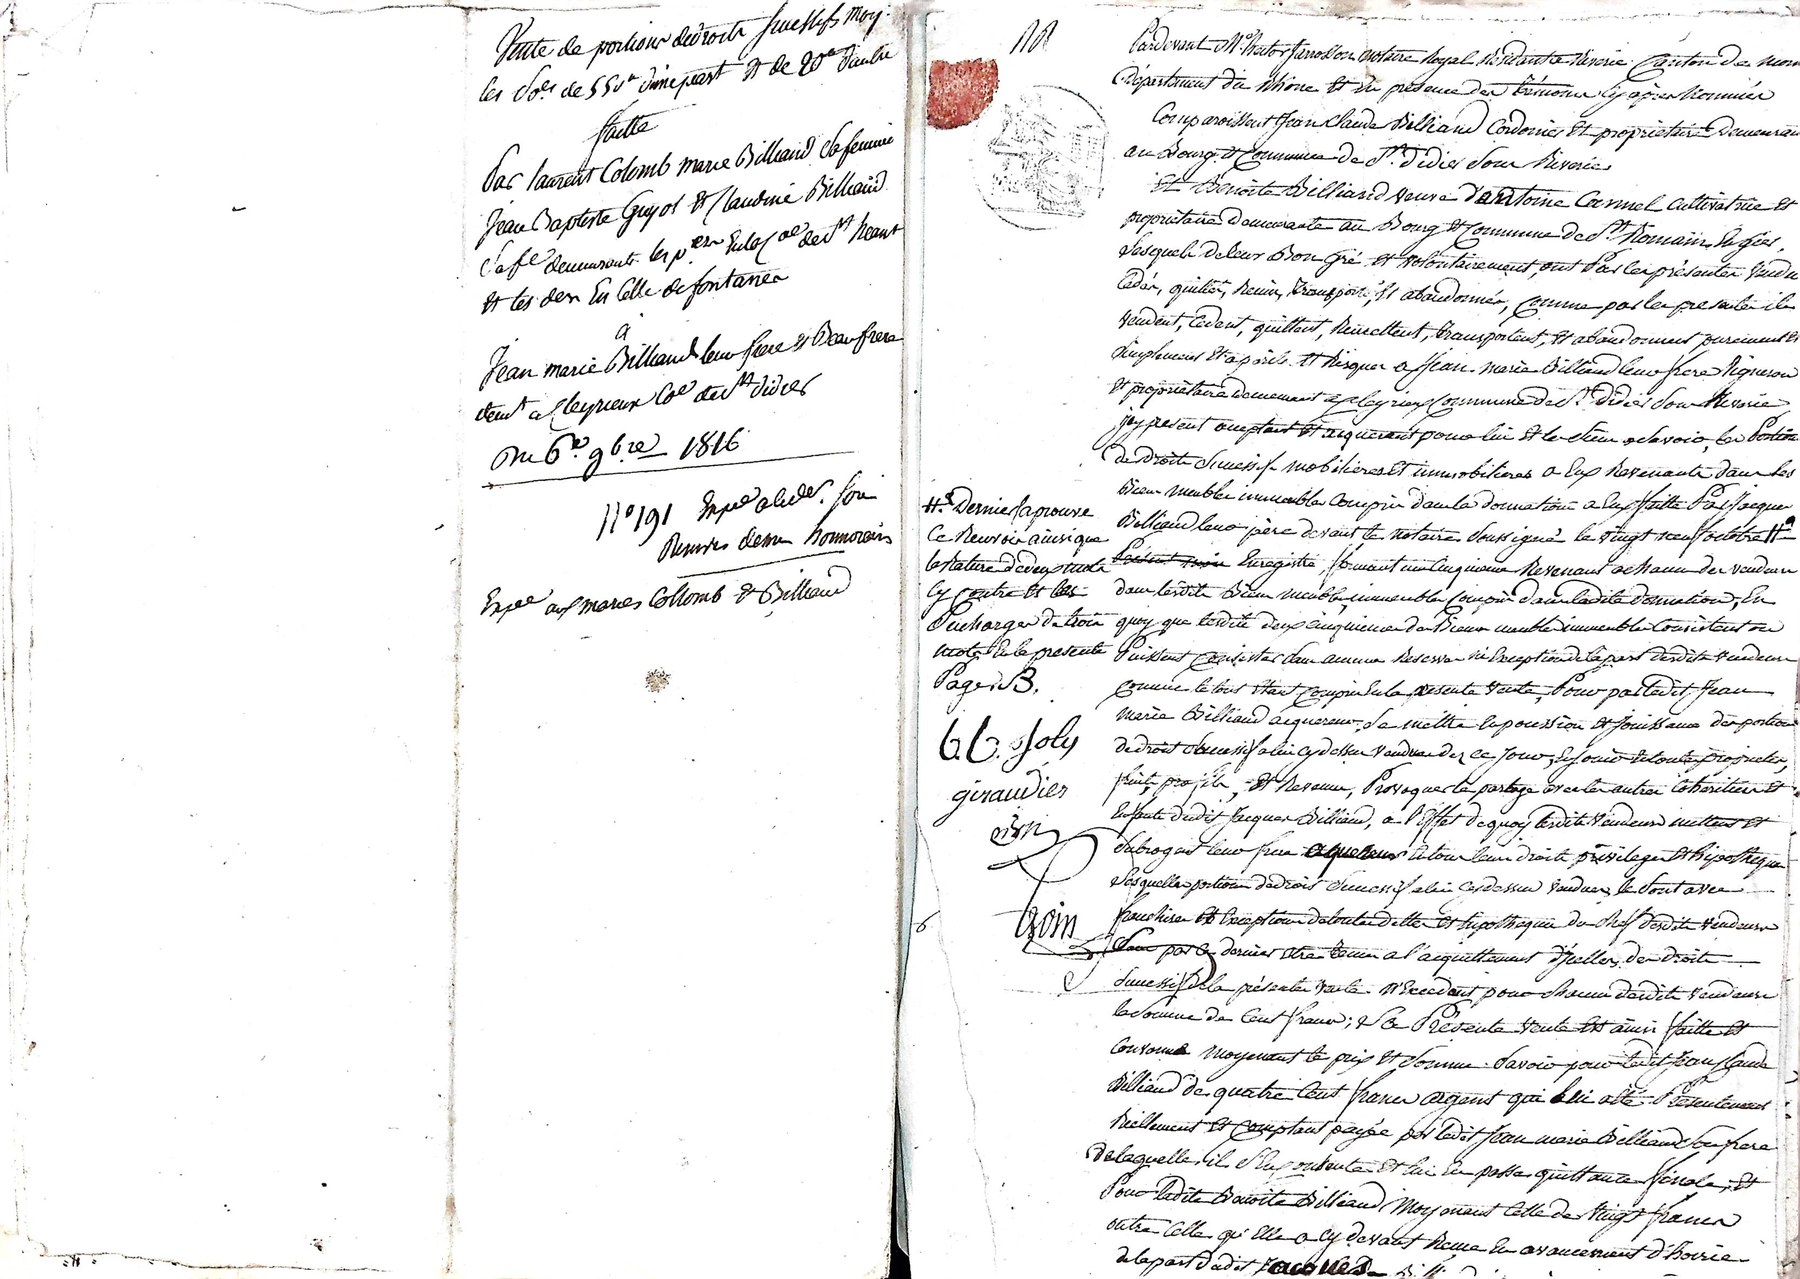 Vente de portions de droits sucessifs moy.
les so.es de 550 d'une part et de 20 d'autre
faitte
Par laurent Colomb marie Billiand sa femme
Jean Baptiste Guyot et Claudine Billiand
sa fe demeurants les p.ers en la C.ne de st
et les der en Celle de fontanes
a
Jean marie Billiand leur frere et Beau frere
demt a Cleyrieux Coe de st didier
Du 6e 9bre 1816
N° 191 Expe
Expe aux maries Collomb et Billiand
Pardevant Me notaire Royal Résidant a Riverie Canton de mor
Département du Rhône et En présence des témoins cy après nommés
Comparoissent Jean Claude Billiand Cordonier et propriétaire Demeurant
au Bourg et Commune de St didier sous Riverie
Et Benoite Billiand veuve d'antoine Carmel Cultivatrice et
propriétaire demeurante au Bourg et Commune de St Romain En gier,
Lesquels de leur Bon gré et volontairement, ont Par les présentes vendu
Cédés, quittés, Remis, transportés, et abandonnés, comme par les presentes ils
vendent, Cedent, quittent, Remettent, transportent, et abandonnent purement et
simplement et a périls et Risques a Jean marie Billiand leur frere Vigneron
et propriétaire demeurant a Cleyrieux Commune de St didier sous Riverie
icy présent acceptant et acquerant pour lui et les siens a savoir, les Portions
de droits Sucessifs mobilières et immobilières a Eux Revenants, dans les
Biens meubles immeubles Compris dans la donnation a Eux faitte Par Jacques
Billiand leur père devant le notaire soussigné le vingt neuf octobre H.a
Enregistré, formant un Cinquieme Revenant a chacun des vendeurs
dans lesdits Biens meubles, immeubles Compris dans ladite donnation, En
quoy que lesdits deux cinquiemes de Biens meubles immeubles Consistent ou
Puissent consister sans aucune Reserve ni Exception de la part desdits vendeurs
Comme le tout Etant Compris En la présente vente, Pour par ledit Jean
marie Billiand aquereur, se mettre En possession et Jouissance des portions
de droits sucessifs a lui cy dessus vendues dez ce Jour, En Jouir En toute propriétés,
fruits, profits, et Revenus, Provoquer le partage avec les autres Cohéritiers et
Enfants dudit Jacques Billiand, a l'Effet de quoy lesdits Vendeurs mettent et
subrogent leur frere aquereur En tous leurs droits privileges et hipotheques
Lesquelles portions de droits Sucessifs a lui cy dessus vendues, le sont avec
franchise et Exception de toutes dettes et hipotheques du chef desdits vendeurs
par ce dernier être tenu a l'acquittement d'ycelles, des droits
sucessifs de la présente vente n'Excedent pour chacun desdits vendeurs
la somme de Cent francs; La Présente vente Est ainsi faitte et
Convenue moyenant le prix et somme. Savoir pour ledit Jean Claude
Billiand de quatre Cent francs argent qui lui a été Présentement
Réellement et comptant payée par ledit Jean marie Billiand Son frere
de laquelle, il s'En Contente et lui En passe quittance finale, et
Pour ladite Benoite Billiand Moyenant Celle de vingt francs
outre Celle qu'Elle a Cy devant Reçue En avancement d'hoirie
de la part dudit Jacques
H.a Dernier aprouvé
Ce Renvoi ainsi que
la Rature de deux mots
Cy contre et les
Surcharges de trois
mots En la presente
Page. B.
C. C. Joly
giraudier